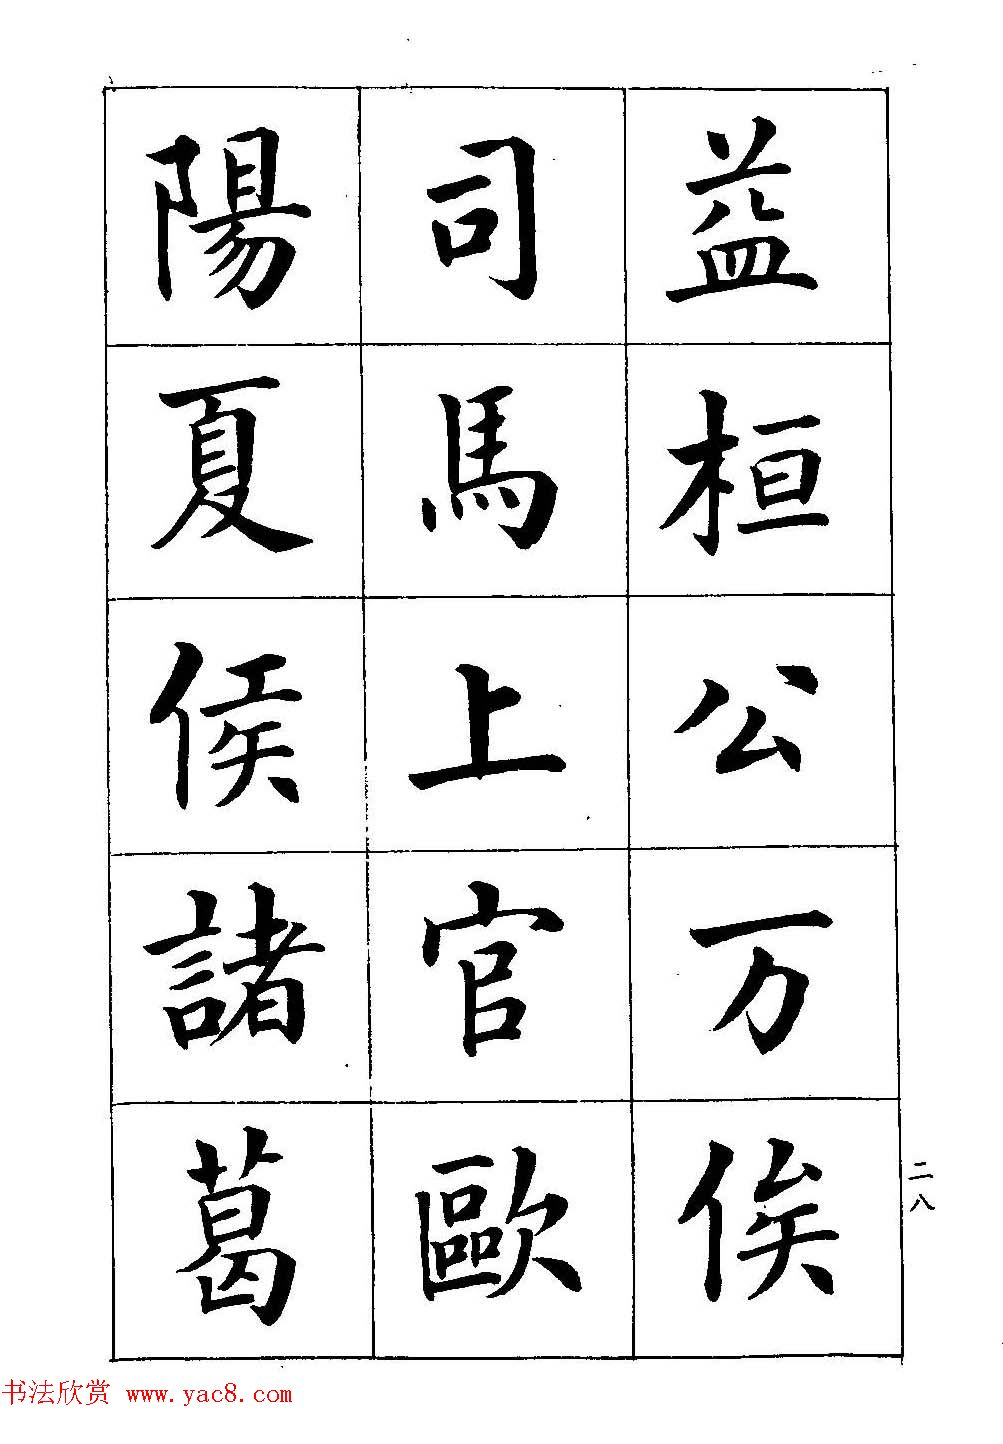 益桓公万俟
司馬上官歐
陽夏侯諸葛
二八
书法欣赏 www.yac8.com